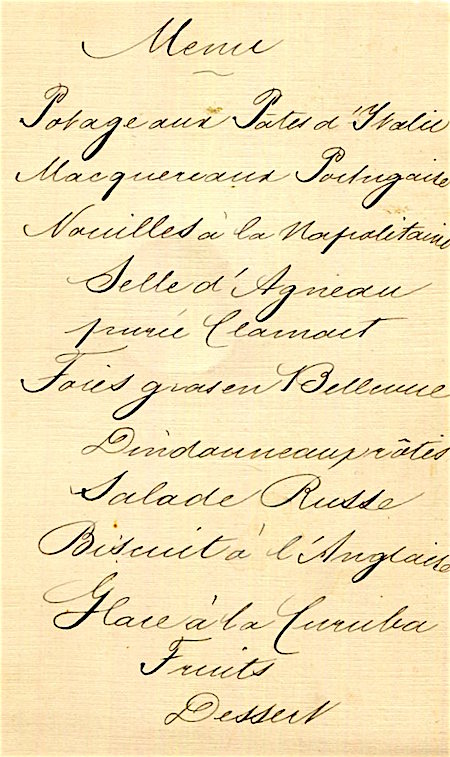 Menu
Potage aux Pâtes d'Italie
Macquereaux Portugaise
Nouilles à la Napolitaine
Selle d'Agneau
purée Clamart
Foies gras en Bellevue
Dindonneaux rôtis
Salade Russe
Biscuit à l'Anglaise
Glace à la Curuba
Fruits
Dessert